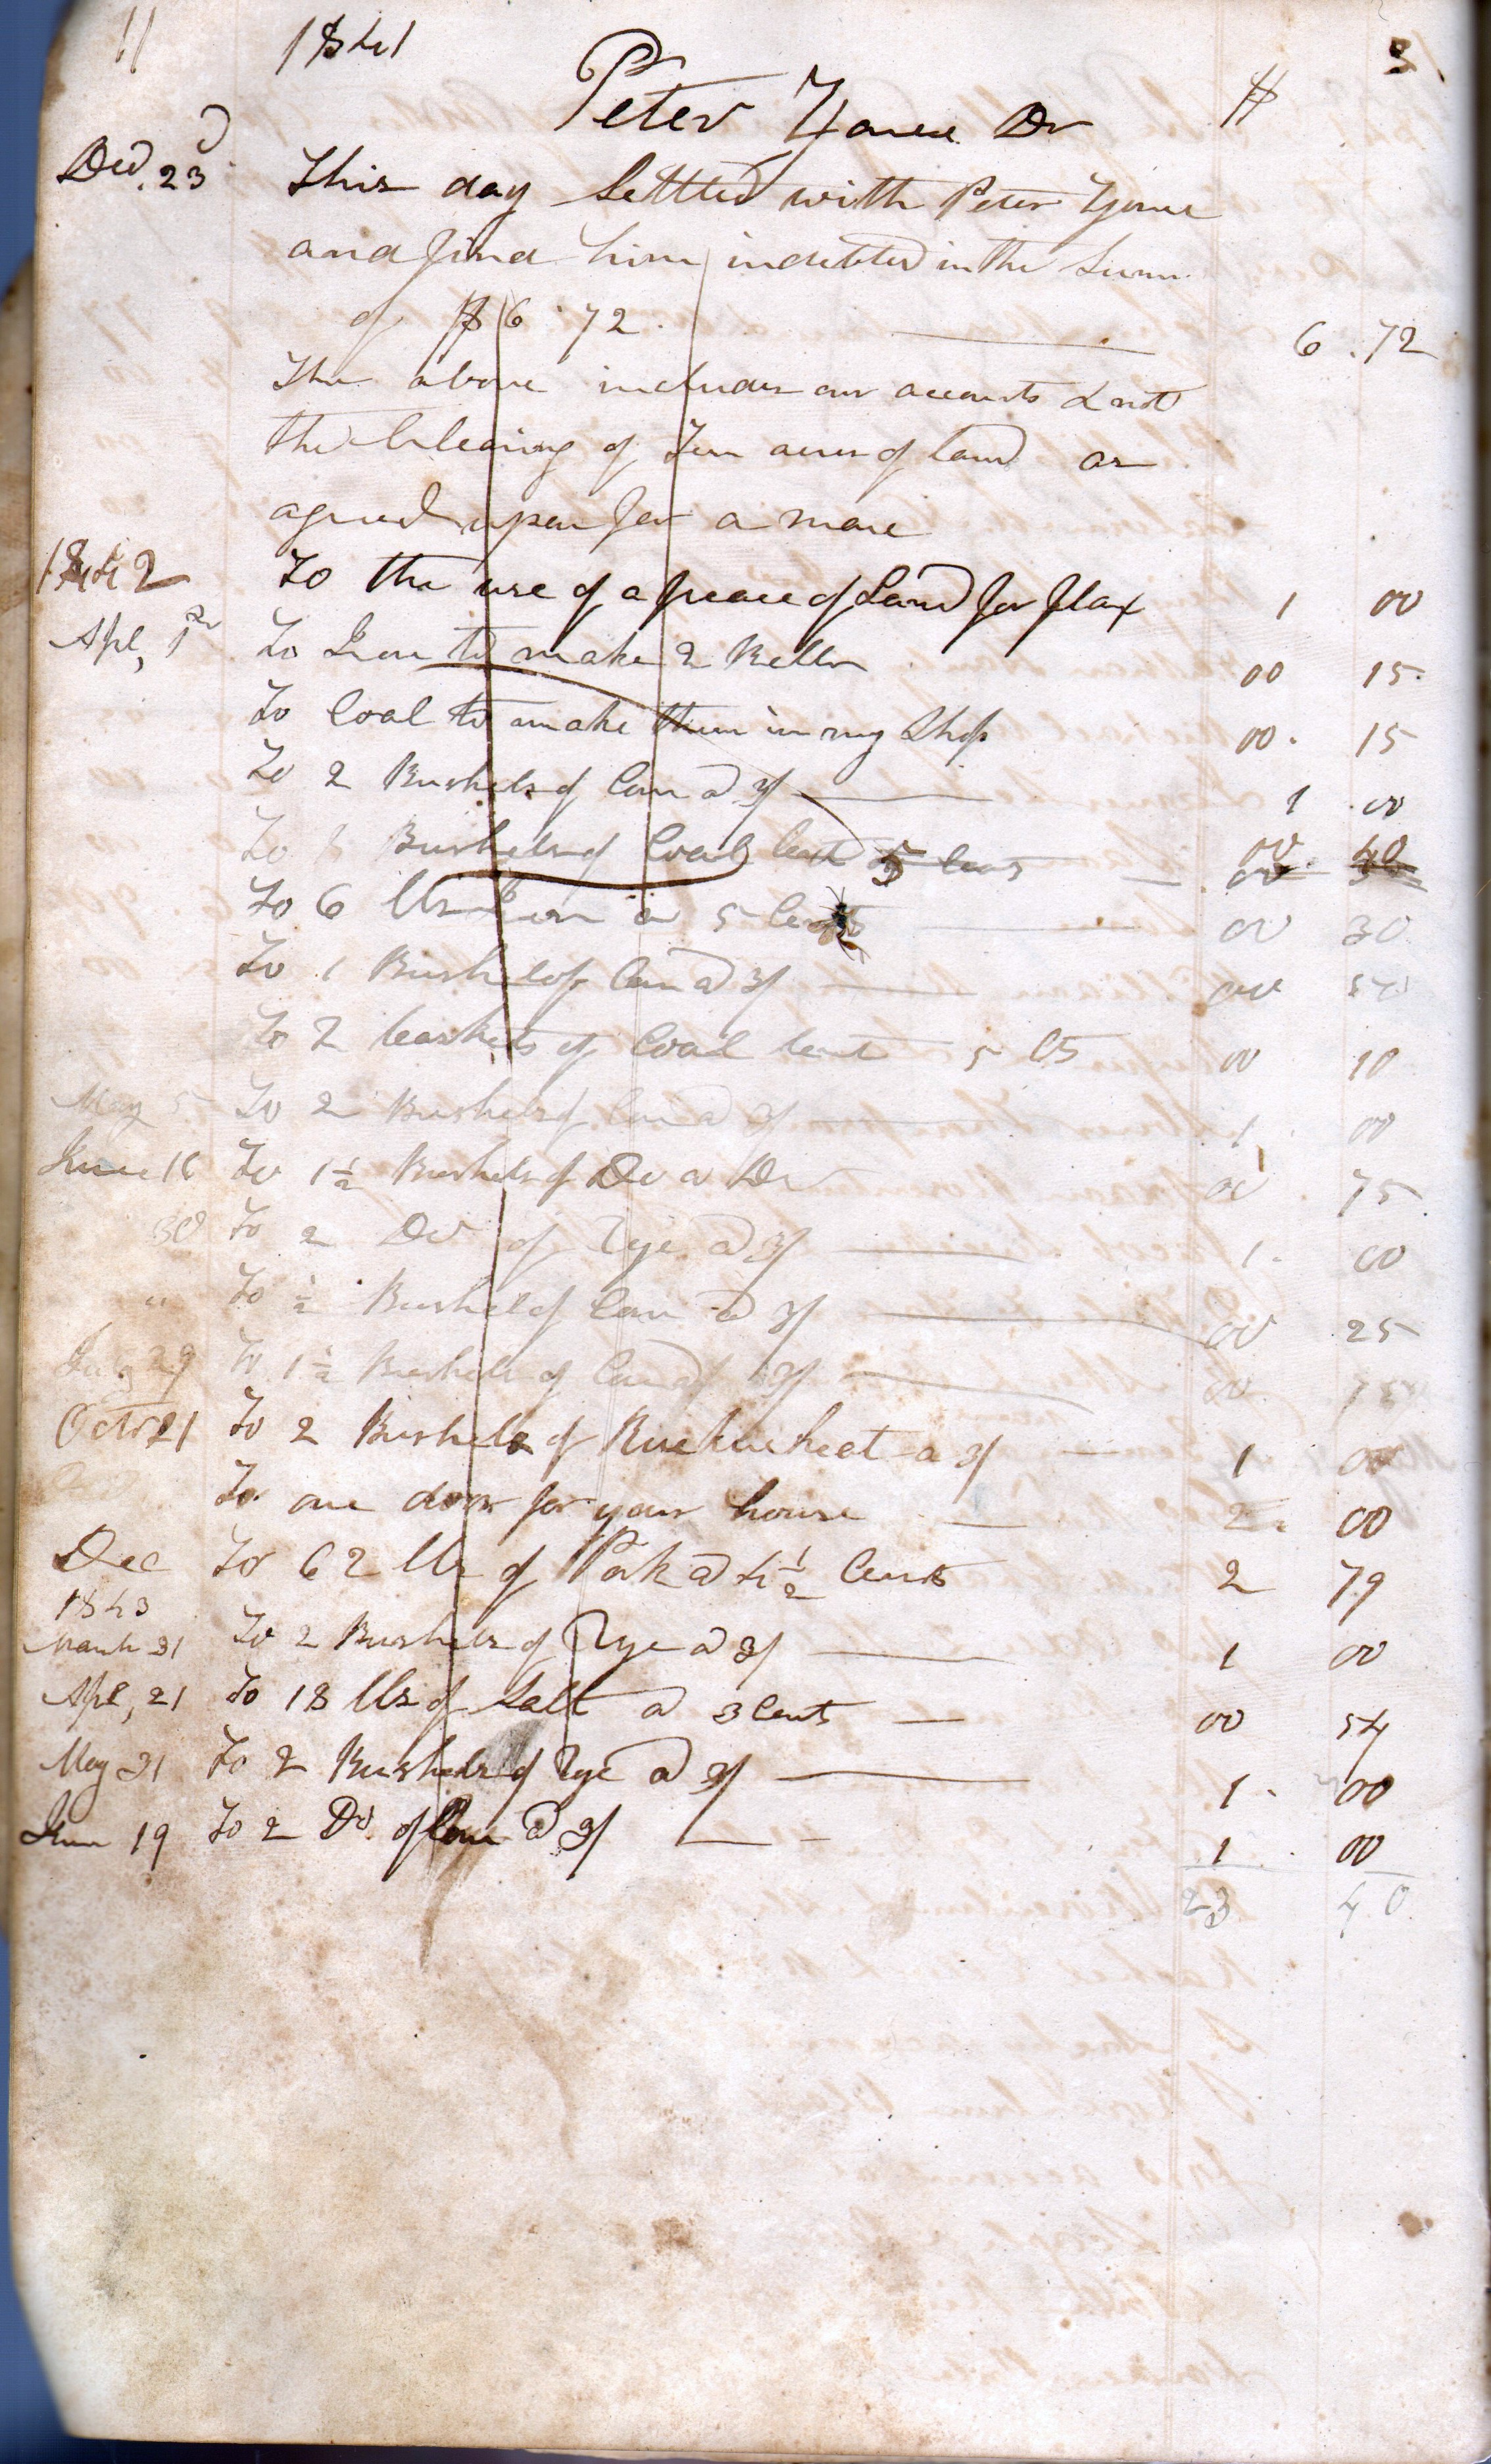 11 1841 3
Peter Yoner Dr $
Decd. 23d This day Settled with Peter Yoner
and find him indebted in the Sum
of $6.72. 6.72
The above includes our accounts & not
the Cleaning of Ten acres of land as
agreed upon for a mare
1842 To the use of a peace of Land for flax 1 00
Apl, 1st To Iron to make 2 Bells 00 15
To Coal to make them in my Shop 00. 15
To 2 Bushels of Corn a 3/ 1 .00
To Bushels of Coal lent 5 Cents 00. 40
To 6 lbs Iron a 5 Cents 00 30
To 1 Bushel of Corn a 3/ 00 50
To 2 baskets of Coal lent 5 C5 00 10
May 5 To 2 Bushels of Corn a 3/ 1. 00
June 16 To 1½ Bushels of Do a Do 00. 75
30 To 2 Do of Rye a 3/ 1. 00
" To ½ Bushel of Corn a 3/ 00 25
July 29 To 1½ Bushels of Corn a 3/ 00 75
Octr 21 To 2 Bushels of Buckwheat a 3/ 1 00
To one door for your house 2. 00
Dec To 62 lbs of Pork a 4½ Cents 2 79
1843
March 31 To 2 Bushels of Rye a 3/ 1 00
Apl, 21 To 18 lbs of Salt a 3 Cents 00 54
May 31 To 2 Bushels of Rye a 3/ 1. 00
June 19 To 2 Do. of Corn a 3/ 1. 00
23 40